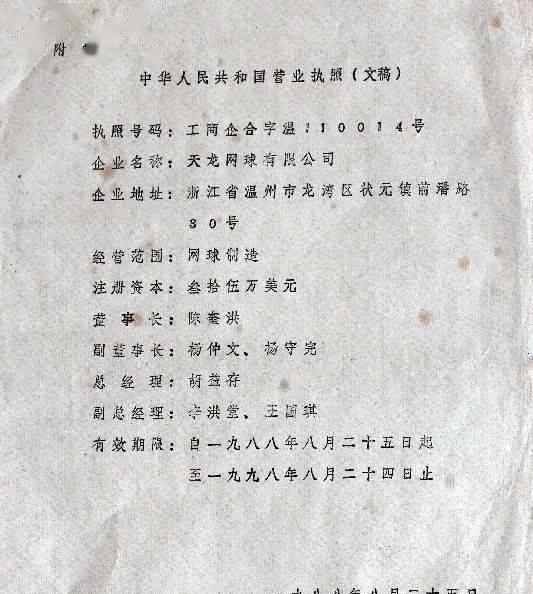 附
中华人民共和国营业执照(文稿)
执照号码:工商企合字温110014号
企业名称:天龙网球有限公司
企业地址:浙江省温州市龙湾区状元镇前潘路
80号
经营范围:网球制造
注册资本:叁拾伍万美元
董事长:陈奎洪
副董事长:杨仲文、杨守完
总经理:胡益存
副总经理:李洪堂、王国琪
有效期限:自一九八八年八月二十五日起
至一九九八年八月二十四日止
九八八年八月二十五日